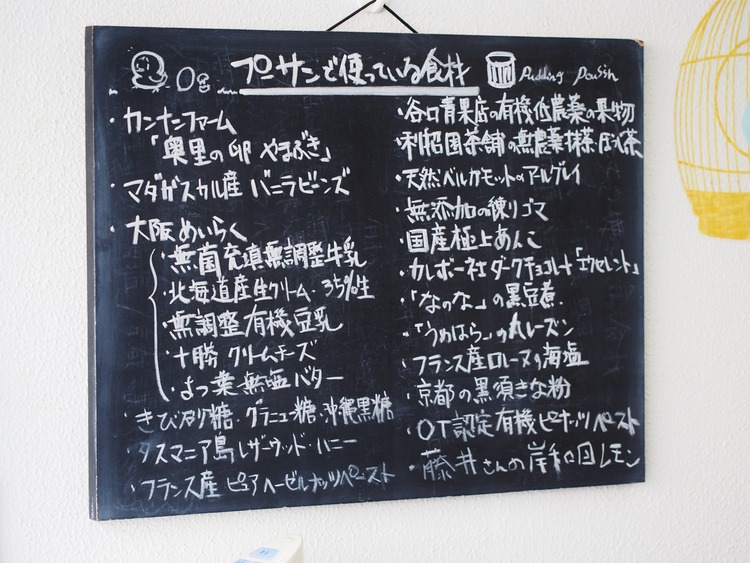 プーサンで使っている食材
Pudding
・カンナンファーム
「奥里の卵 やまぶき」
・マダガスカル産 バニラビーンズ
・大阪めいらく
・無菌充填無調整牛乳
・北海道産生クリーム・35%生
・無調整有機豆乳
・十勝 クリームチーズ
・よつ葉無塩バター
・きび砂糖・グラニュー糖・沖縄黒糖
・タスマニア島 レザーウッド・ハニー
・フランス産 ピュアヘーゼルナッツペースト
・谷口青果店の有機低農薬の果物
・利招園茶舗の無農薬抹茶・ほうじ茶
・天然ベルガモットのアールグレイ
・無添加の練りゴマ
・国産極上あんこ
・カレボー社ダークチョコレート「エクセレント」
・「なのな」の黒豆煮
・「うめはら」の丸レーズン
・フランス産ロレーヌの海塩
・京都の黒須きな粉
・OT認定有機ピーナッツペースト
・藤井さんの岸和田レモン